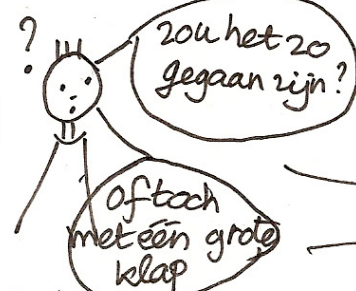 ?
zou het zo
gegaan zijn?
of toch
met één grote
klap